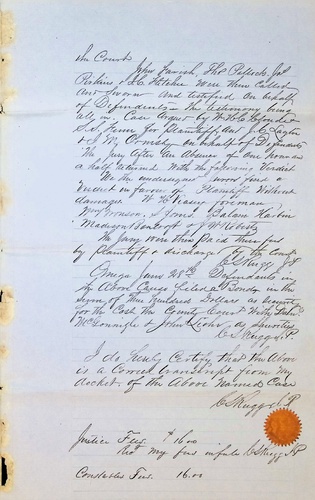 In Court
John Parrish, Thos Pollock, Jas
Perkins & S.C. Fletcher Were then Called
And Sworn And testified on behalf
of Defendants The testimony being
all in. Case Argued by W.H.C.
S.S. for Plaintiff, And J.C.
& J. M. Ormsby on behalf of Defendants
The Jury After An Absence of One hour and
a half Returned With the following Verdict
We the undersigned Jurors find a
Verdict in favour of Plaintiff Without
damages W. H. foreman
S Jones. Balam Hardin
Madison & J W Roberts
The Jury were then Paid their fees
by Plaintiff & discharged by the Court
J.P.
Omega June 28th Defendants in
the Above Cause filed a Bond in the
sum of One Hundred Dollars as security
for the Cost the County Court With
McConnigle & John as Securities
C Skuggs J.P.
I do Hereby Certify that the Above
is a Correct transcript from My
docket of the Above Named Case
C Skuggs J.P.
Justice Fees $16.00
my fees in full C Skuggs J.P.
Constables Fees 16.00